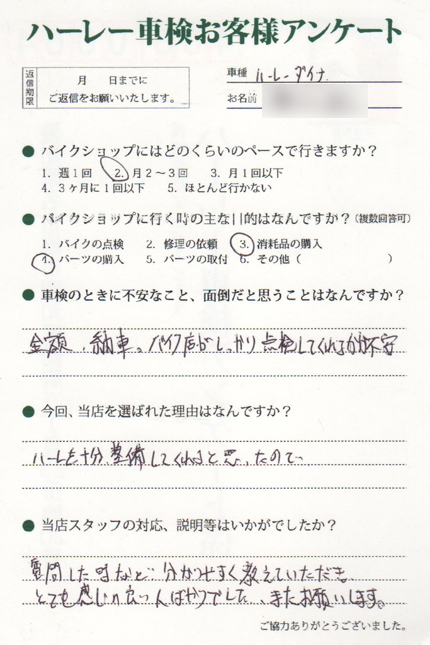 ハーレー車検お客様アンケート
返信期限
月　日までに
ご返信をお願いいたします。
車種 ハーレーダイナ
お名前
● バイクショップにはどのくらいのペースで行きますか？
1. 週1回　2. 月2～3回　3. 月1回以下
4. 3ヶ月に1回以下　5. ほとんど行かない
● バイクショップに行く時の主な目的はなんですか？（複数回答可）
1. バイクの点検　2. 修理の依頼　3. 消耗品の購入
4. パーツの購入　5. パーツの取付　6. その他（　　　）
● 車検のときに不安なこと、面倒だと思うことはなんですか？
金額、納車。バイク店がしっかり点検してくれるかが不安
● 今回、当店を選ばれた理由はなんですか？
ハーレーを十分、整備してくれると思ったので
● 当店スタッフの対応、説明等はいかがでしたか？
質問した時など分かりやすく教えていただき、
とても感じの良い人ばかりでした、またお願いします。
ご協力ありがとうございました。